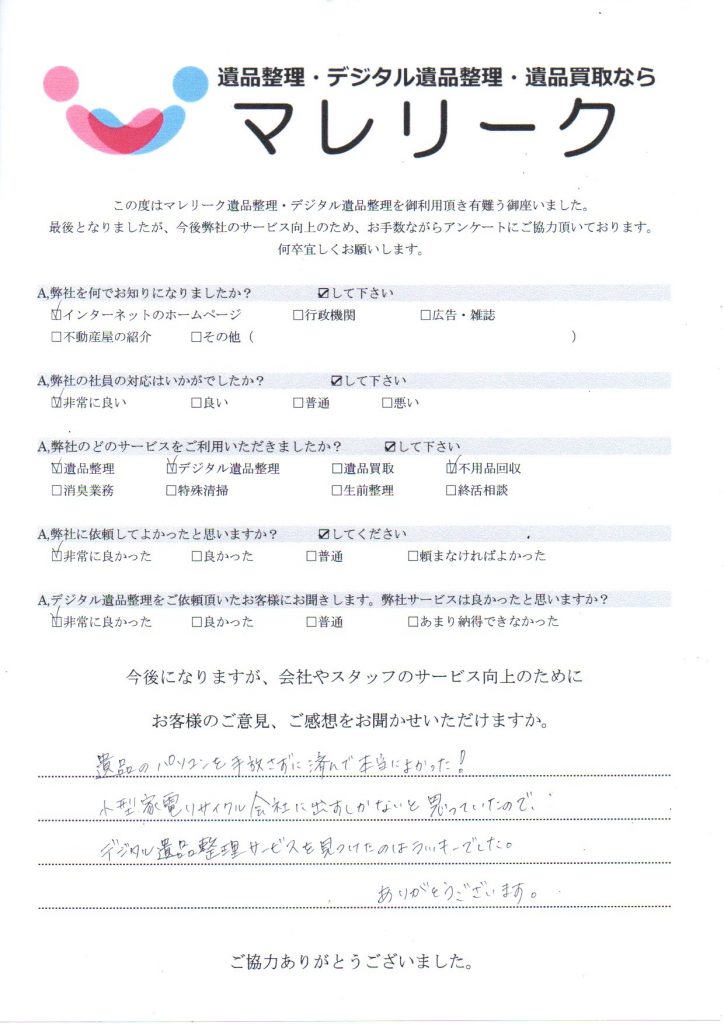 遺品整理・デジタル遺品整理・遺品買取なら
マレリーク
この度はマレリーク遺品整理・デジタル遺品整理を御利用頂き有難う御座いました。
最後となりましたが、今後弊社のサービス向上のため、お手数ながらアンケートにご協力頂いております。
何卒宜しくお願いします。
A,弊社を何でお知りになりましたか？ ☑して下さい
☑インターネットのホームページ □行政機関 □広告・雑誌
□不動産屋の紹介 □その他（ ）
A,弊社の社員の対応はいかがでしたか？ ☑して下さい
☑非常に良い □良い □普通 □悪い
A,弊社のどのサービスをご利用いただきましたか？ ☑して下さい
☑遺品整理 ☑デジタル遺品整理 □遺品買取 ☑不用品回収
□消臭業務 □特殊清掃 □生前整理 □終活相談
A,弊社に依頼してよかったと思いますか？ ☑してください
☑非常に良かった □良かった □普通 □頼まなければよかった
A,デジタル遺品整理をご依頼頂いたお客様にお聞きします。弊社サービスは良かったと思いますか？
☑非常に良かった □良かった □普通 □あまり納得できなかった
今後になりますが、会社やスタッフのサービス向上のために
お客様のご意見、ご感想をお聞かせいただけますか。
遺品のパソコンを手放さずに済んで本当によかった！
小型家電リサイクル会社に出すしかないと思っていたので、
デジタル遺品整理サービスを見つけたのはラッキーでした。
ありがとうございます。
ご協力ありがとうございました。